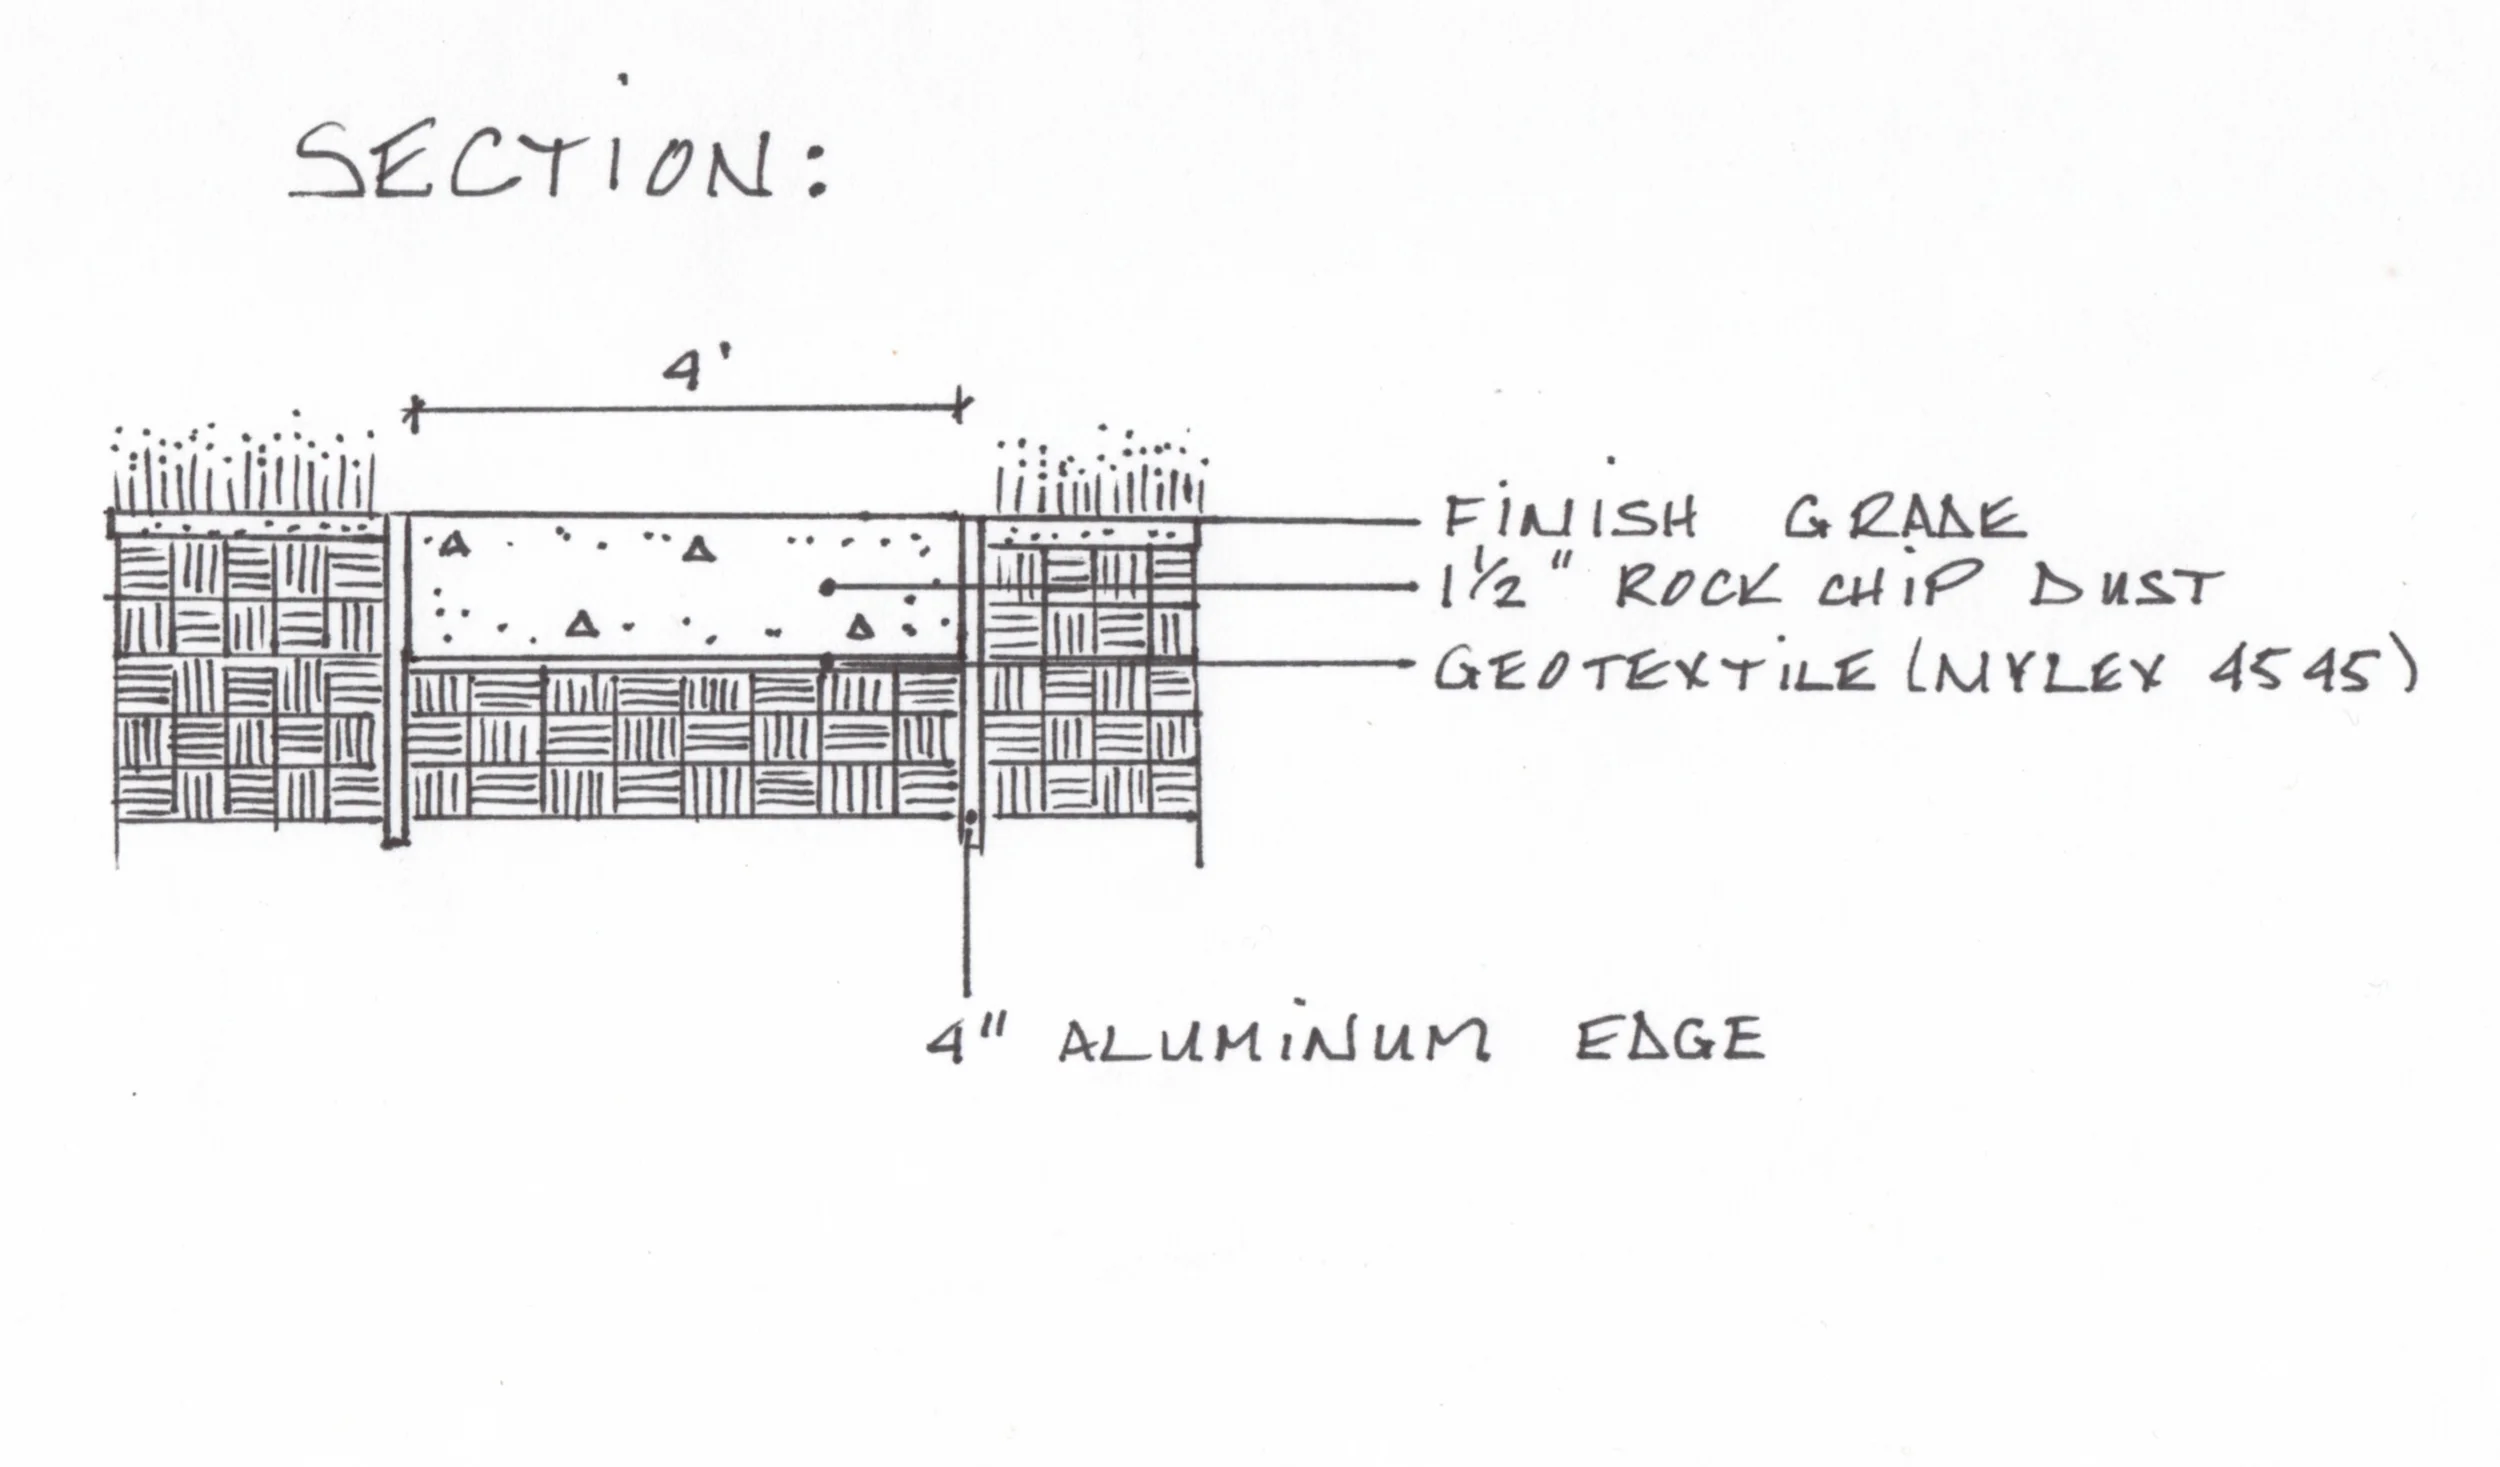 SECTION:
4'
FINISH GRADE
1½" ROCK CHIP DUST
GEOTEXTILE (NYLEX 4545)
4" ALUMINUM EDGE